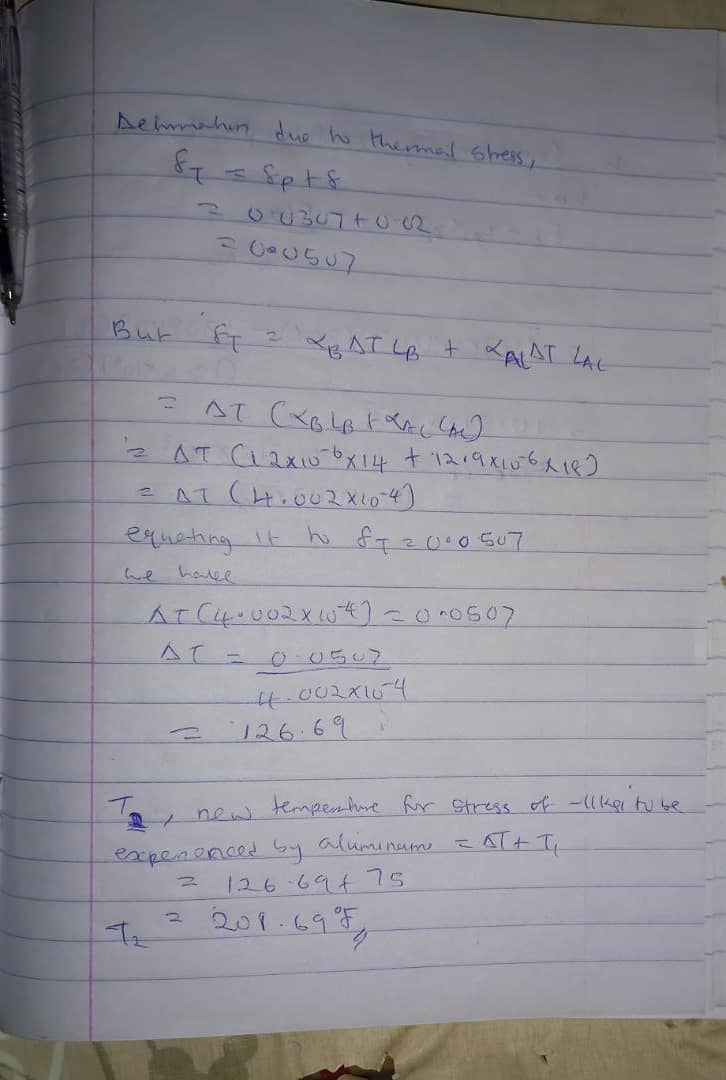 Deformation due to thermal stress,
δT = δP + δ
= 0.0307 + 0.02
= 0.0507
But δT = αBΔT LB + αALΔT LAL
= ΔT (αBLB + αALLAL)
= ΔT (12x10^-6 x14 + 12.9x10^-6 x18)
= ΔT (4.002x10^-4)
equating it to δT = 0.0507
we have
ΔT(4.002x10^-4) = 0.0507
ΔT = 0.0507
4.002x10^-4
= 126.69
T2, new temperature for stress of -11ksi to be
experienced by aluminum = ΔT + T1
= 126.69 + 75
T2 = 201.69°F